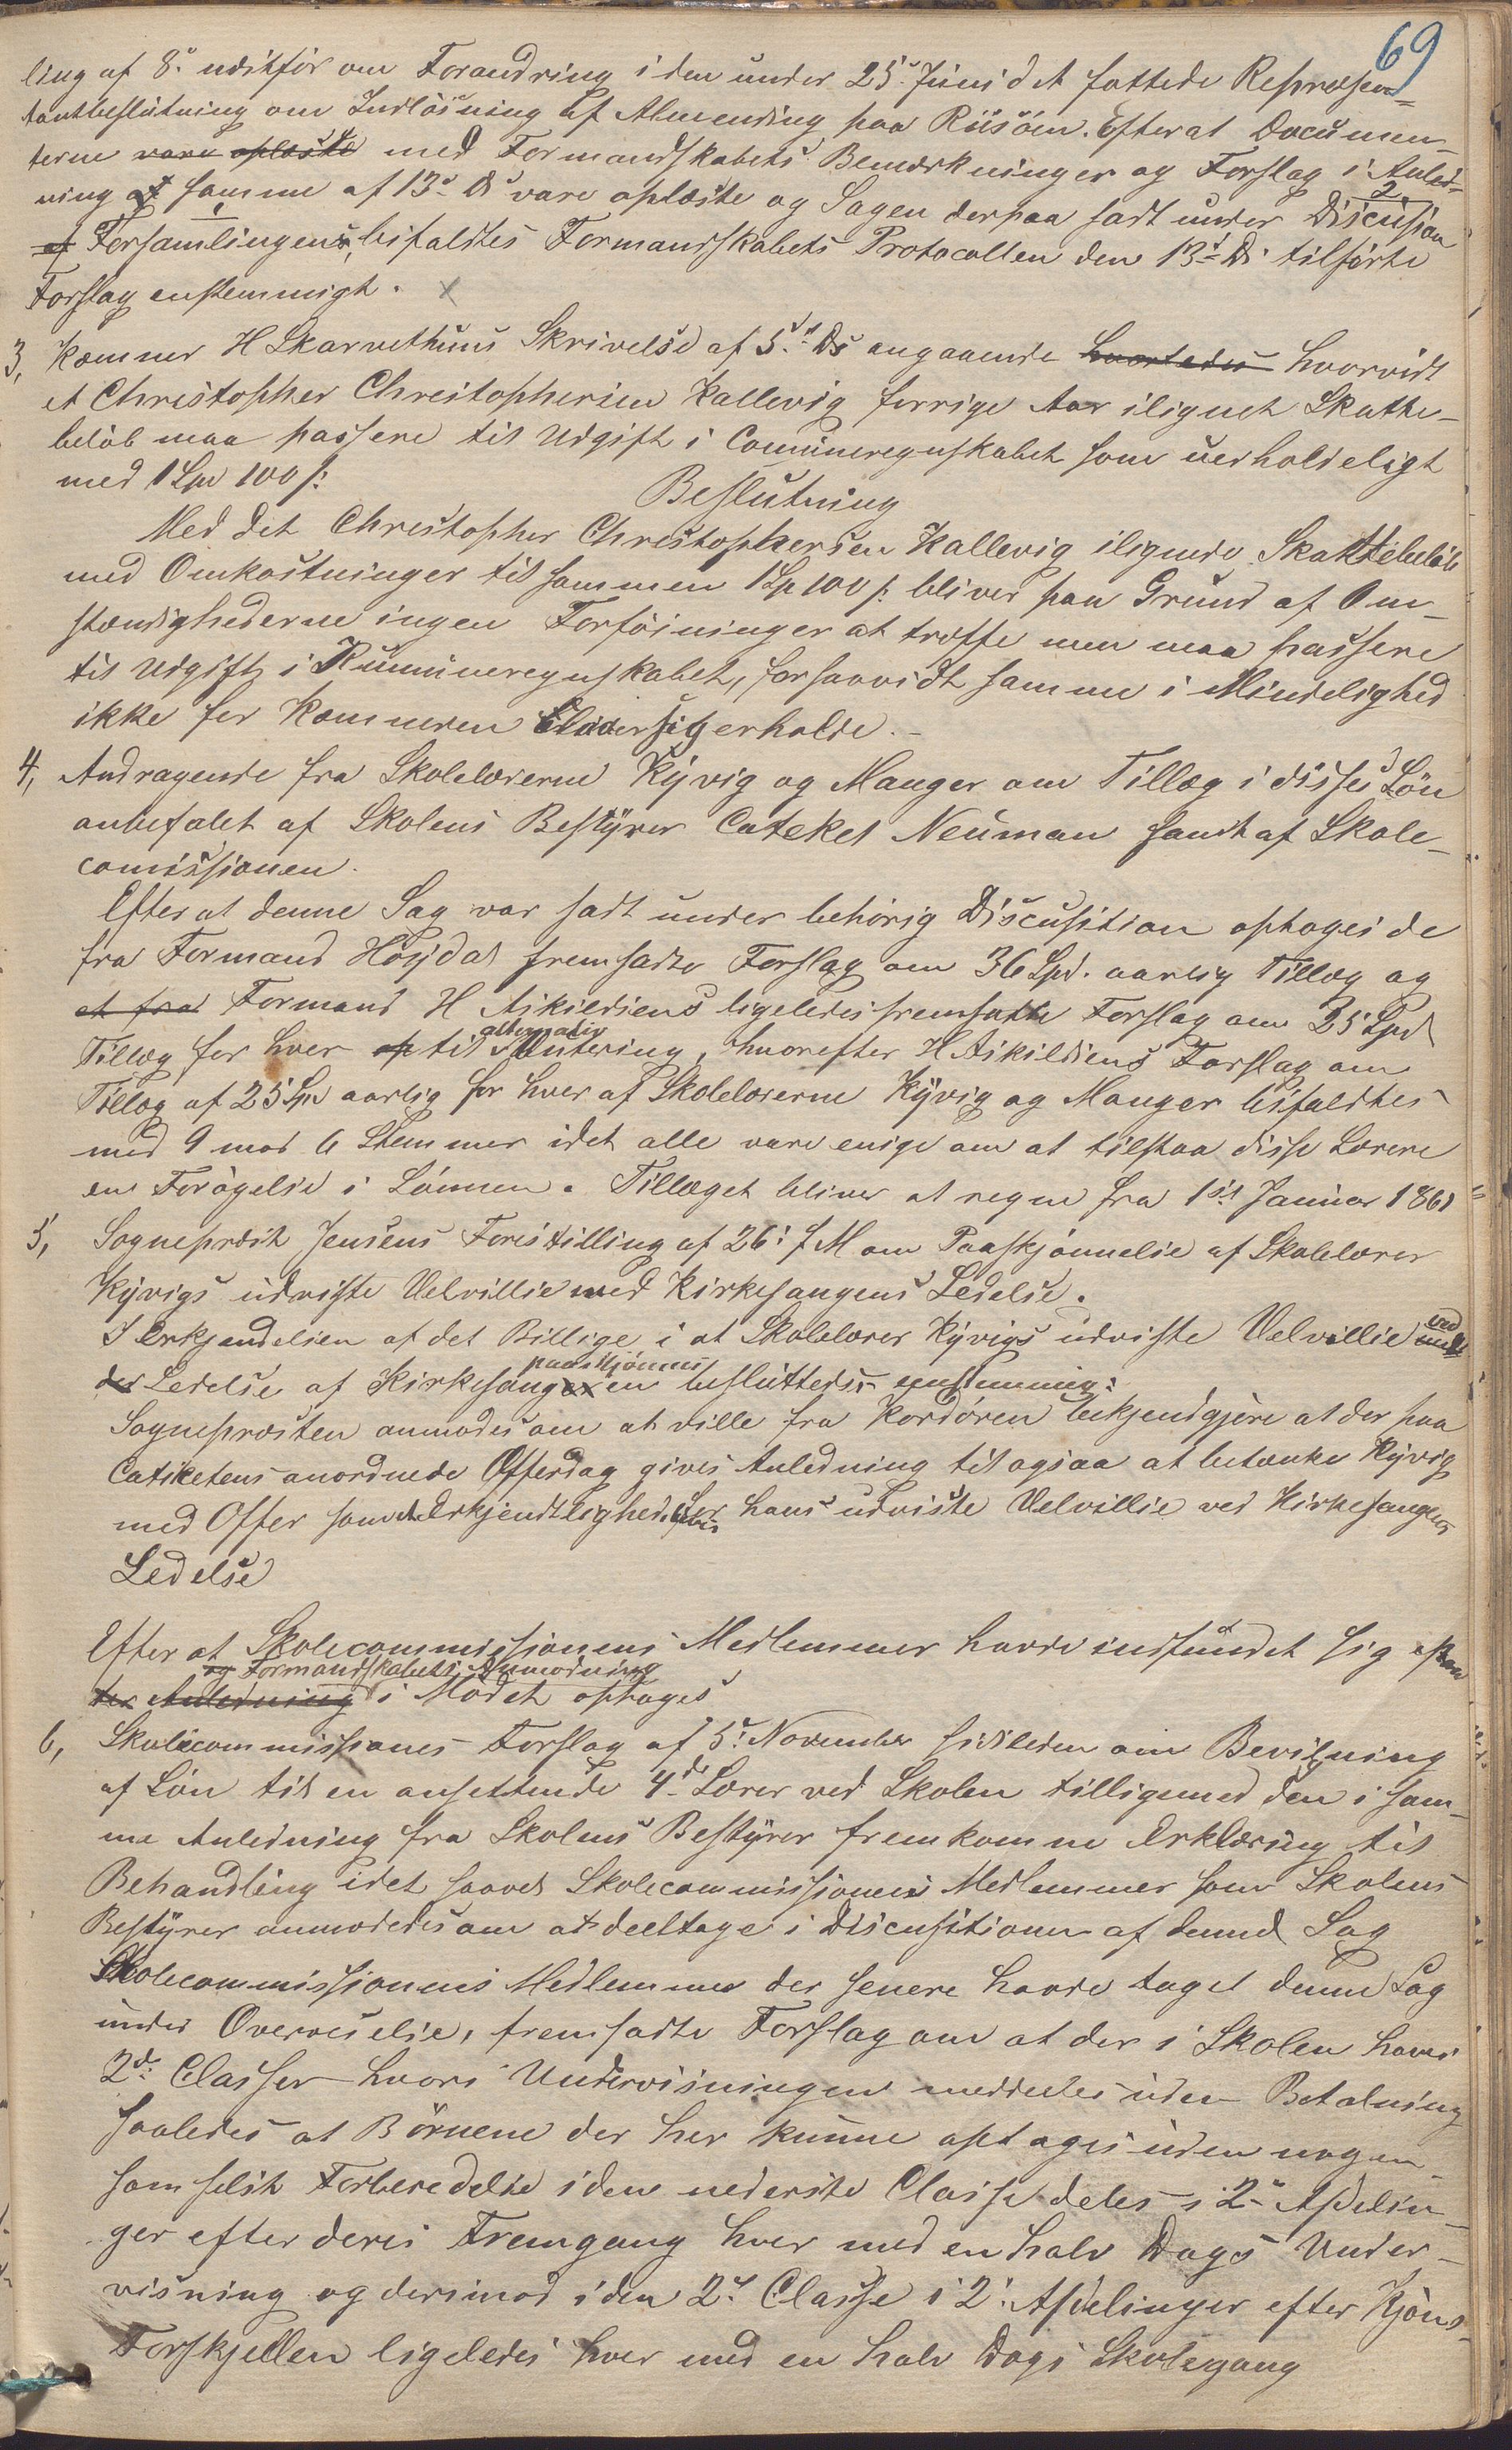 69
ling af 8de udskför om Forandring i den under 25de Juni d A fattede Repræsen=
tantbeslutning om Indlösning af Almending paa Risöen. Efterat Documen-
terne vare oplæste med Formandskabets Bemærkninger og Forslag i Anled-
ning af samme af 13de Ds vare oplæste og Sagen derpaa sadt under Discusion
af Forsamlingens, bifaldtes Formandskabets Protocollen den 13de Ds tilförte
Forslag enstemmigt.
3, Kæmner H Skarvethuns Skrivelse af 5te Ds angaaende hvorledes hvorvidt
et Christopher Christophersen Kallevig forrige Aar ilignet Skatte-
belöb maa passere til Udgift i Comüneregnskabet som uerholdeligt
med 1 Spd 100 s:
Beslutning
Med det Christopher Christophersen Kallevig ilignede Skattebelöb
med Omkostninger tilsammen 1 Sp 100 s: bliver paa Grund af Om-
stændighederne ingen Forföininger at træffe men maa passere
til Udgift i Kummüneregnskabet, forsaavidt samme i Mindelighed
ikke for Kæmneren lader sig erholde.-
4, Andragende fra Skolelærerne Kyvig og Manger om Tillæg i disses Lön
anbefalet af Skolens Bestyrer Cateket Neuman samt af Skole-
comissionen.
Efter at denne Sag var sadt under behörig Discusition optoges de
fra Formand Höydal fremsadte Forslag om 36 Spd. aarlig Tillæg og
et fra Formand H Askildsens ligeledes fremsatte Forslag om 25 Spd
Tillæg for hver op til alternativ Votering, hvorefter H Askildsens Forslag om
Tillæg af 25 Sp aarlig for hver af Skolelærerne Kyvig og Manger bifaldtes
med 9 mod 6 Stemmer idet alle vare enige om at tilstaa disse Lærere
en Forögelse i Lönnen. Tillæget bliver at regne fra 1ste Januar 1861
5, Sogneprest Jensens Forestilling af 26de f M om Paaskjönnelse af Skolelærer
Kyvigs udviste Velvillie med Kirkesangens Ledelse.
I Erkjendelsen af det Billige i at Skolelærer Kyvigs udviste Velvillie ved
der Ledelse af Kirkesangen paaskjönnes besluttedes enstemmig:
Sognepresten anmodes om at ville fra Kordören bekjendgjöre at der paa
Catiketens anordnede Offerdag gives Anledning til ogsaa at betænke Kyvig
med Offer som Erkjendtlighed for hans udviste Velvillie ved Kirkesangens
Ledelse
Efter at Skolecommissionens Medlemmer havde indfundet sig efter
og Formandskabets Anmodning
Anledning i Mödet optoges
6, Skolecommissionens Forslag af 5te November sidstleden om Bevilgning
af Lön til en ansettende 4de Lærer ved Skolen tilligemed den i sam-
me Anledning fra Skolens Bestyrer fremkomne Erklæring til
Behandling idet saavel Skolecommissionens Medlemmer som Skolens
Bestyrer anmodedes om at deeltage i Discusitionen af denne Sag
Skolecommissionens Medlemmer der senere havde taget denne Sag
under Overveielse, fremsadte Forslag om at der i Skolen haves
2de Classer hvori Undervisningen meddeles uden Betalning
saaledes at Börnene der her kunne optages uden nogen-
somhelst Forberedelse i den nederste Classe deles i 2de Afdelin-
ger efter deres Fremgang hver med en halv Dags Under-
visning og derimod i den 2de Classe i 2de Afdelinger efter Kjöns-
Forskjellen ligeledes hver med en halv Dags Skolegang